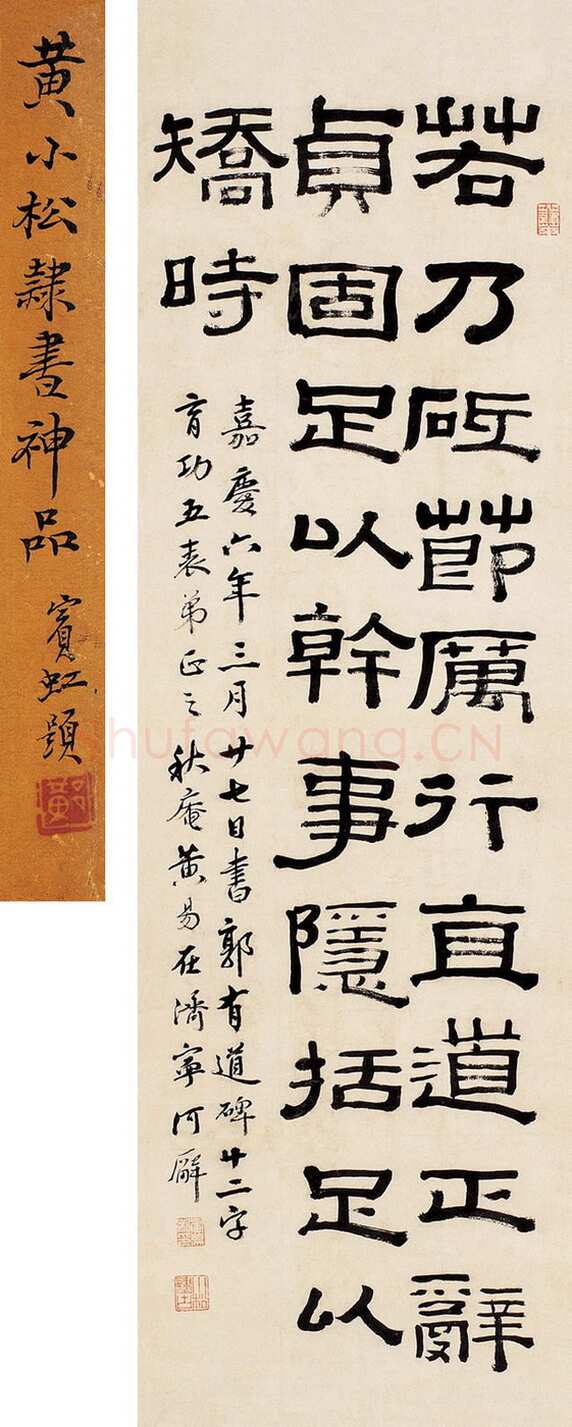 若乃砥節厲行直道正辭
貞固足以幹事隱括足以
矯時
嘉慶六年三月廿七日書郭有道碑廿二字
育功五表弟正之 秋庵黃易在濟寧河廨
黃小松隸書神品 賓虹題
Shufawang.CN